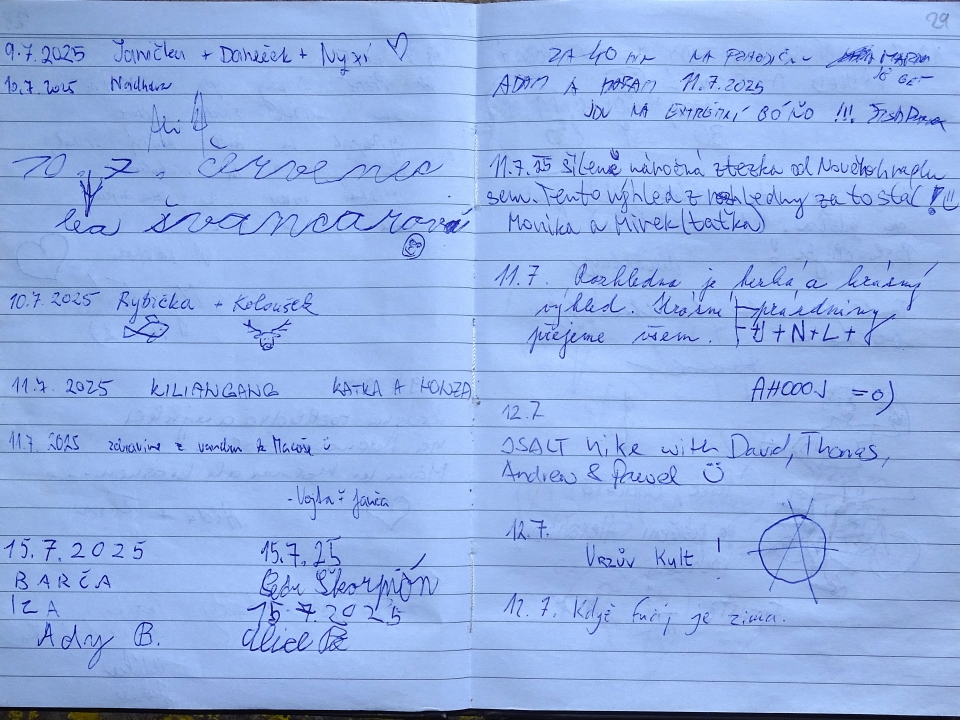 9.7.2025 Janička + Daneček + Nyxí ♡
10.7.2025 Nádhera
10. 7. červenec
lea švancarová
10.7.2025 Rybička + Koloušek
11.7.2025 KILIANGANG KATKA A HONZA
11.7.2025 zdravíme z vandru
- Vojta
15.7.2025 15.7.25
BARČA Škorpión
IZA 15.7.2025
Ady B.
29
ZA 40 MIN NA
ADAM A 11.7.2025
JDU NA EXTRÉMNÍ !!!
11.7.25 šíleně náročná ztezka od Nového hradu
sem. Tento výhled z rozhledny za to stál!
Monika a Mirek (taťka)
11.7. Rozhledna je hezká a krásný
výhled. Krásné prázdniny
přejeme všem. + N + L +
AHOOOJ =o)
12.7
hike with David, Thomas,
Andrew & Pawel ü
12.7.
Vrzův Kult !
12.7. Když fučí je zima.